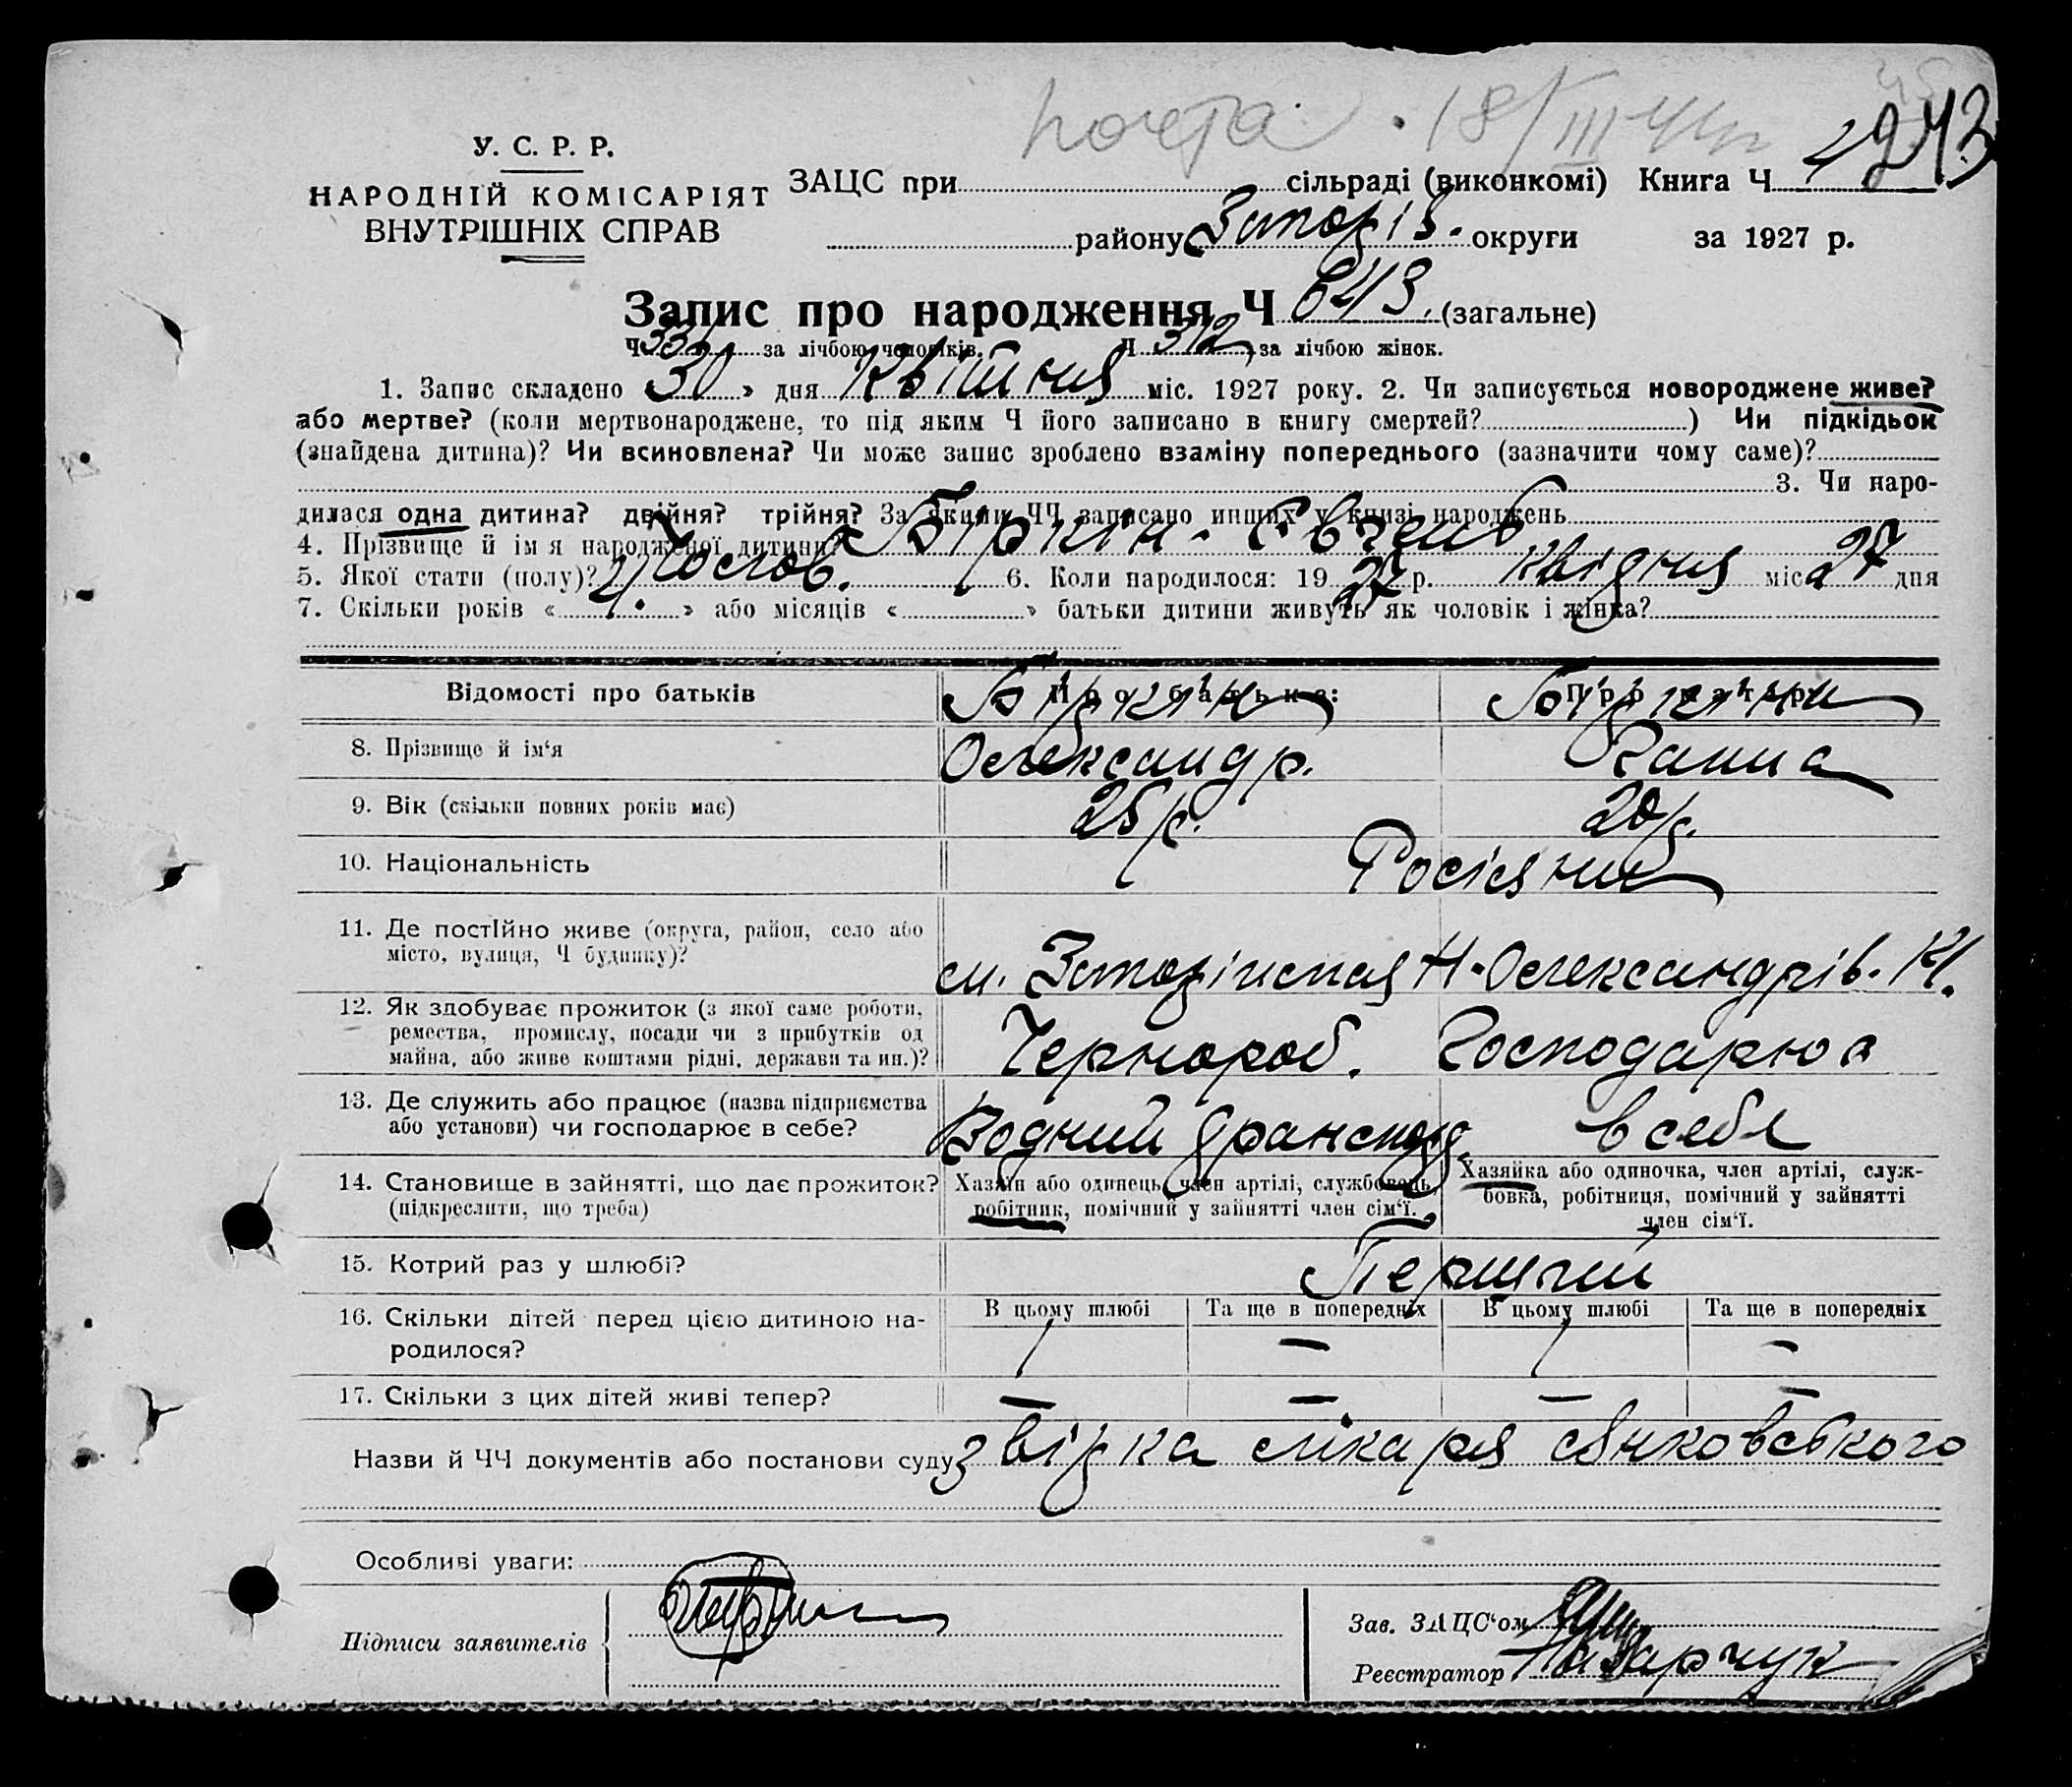 почта . 18/III 44
У. С. Р. Р.
НАРОДНІЙ КОМІСАРІЯТ
ВНУТРІШНІХ СПРАВ
ЗАЦС при сільраді (виконкомі) Книга Ч 243
району Запоріз. округи за 1927 р.
Запис про народження Ч 643. (загальне)
Ч 331 за лічбою чоловіків. Ч 312 за лічбою жінок.
1. Запис складено 30 » дня Квітня міс. 1927 року. 2. Чи записується новороджене живе?
або мертве? (коли мертвонароджене, то під яким Ч його записано в книгу смертей? ) Чи підкідьок
(знайдена дитина)? Чи всиновлена? Чи може запис зроблено взаміну попереднього (зазначити чому саме)?
3. Чи наро-
дилася одна дитина? двійня? трійня? За якими ЧЧ записано инших у книзі народжень
4. Прізвище й ім я народженої дитини? Біркін - Євгень
5. Якої стати (полу)? Чолов. 6. Коли народилося: 19 27 р. квідня міс 27 дня
7. Скільки років « 4. » або місяців « » батьки дитини живуть як чоловік і жінка?
Відомості про батьків Про батька: Біркін Про матери Біркіни
8. Прізвище й ім‘я Олександр. Ганна
9. Вік (скільки повних років має) 25 р. 20 р.
10. Національність Росіяни
11. Де постійно живе (округа, район, село або
місто, вулиця, Ч будинку)?
м. Запоріжжя Н-Олександрів. К.
12. Як здобуває прожиток (з якої саме роботи,
ремества, промислу, посади чи з прибутків од
майна, або живе коштами рідні, держави та ин.)?
Чернороб. Господарює
13. Де служить або працює (назва підприємства
або установи) чи господарює в себе?
Водний транспорт. в себе
14. Становище в зайнятті, що дає прожиток?
(підкреслити, що треба)
Хазяїн або одинець, член артілі, службовець,
робітник, помічний у зайнятті член сім‘ї.
Хазяйка або одиночка, член артілі, служ-
бовка, робітниця, помічний у зайнятті
член сім‘ї.
15. Котрий раз у шлюбі? Перший
16. Скільки дітей перед цією дитиною на-
родилося?
В цьому шлюбі Та ще в попередніх В цьому шлюбі Та ще в попередніх
1 — 1 —
17. Скільки з цих дітей живі тепер? — — — —
Назви й ЧЧ документів або постанови суду звірка лікаря
Особливі уваги:
Підписи заявителів
Зав. ЗАЦС‘ом
Реєстратор Назарчук